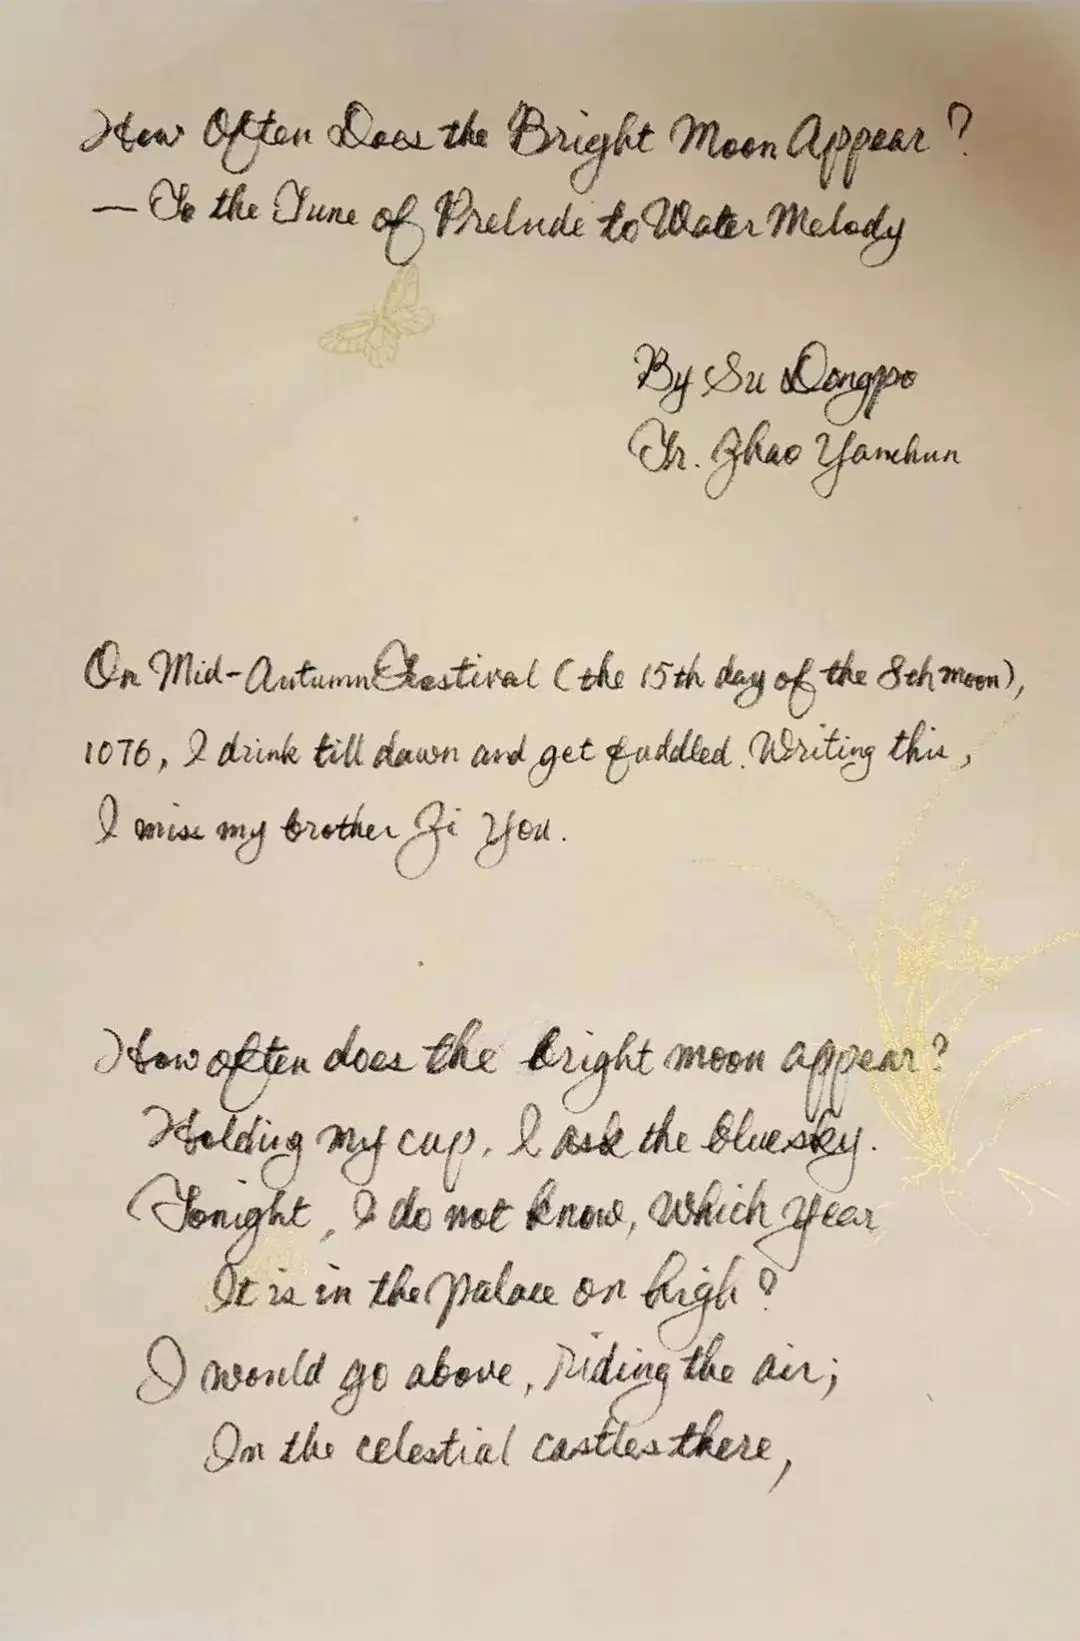 How Often Does the Bright Moon Appear?
— To the Tune of Prelude to Water Melody
By Su Dongpo
Tr. Zhao Yanchun
On Mid-Autumn Festival (the 15th day of the 8th moon),
1076, I drink till dawn and get fuddled. Writing this,
I miss my brother Zi You.
How often does the bright moon appear?
Holding my cup, I ask the blue sky.
Tonight, I do not know, which year
It is in the palace on high?
I would go above, riding the air;
In the celestial castles there,